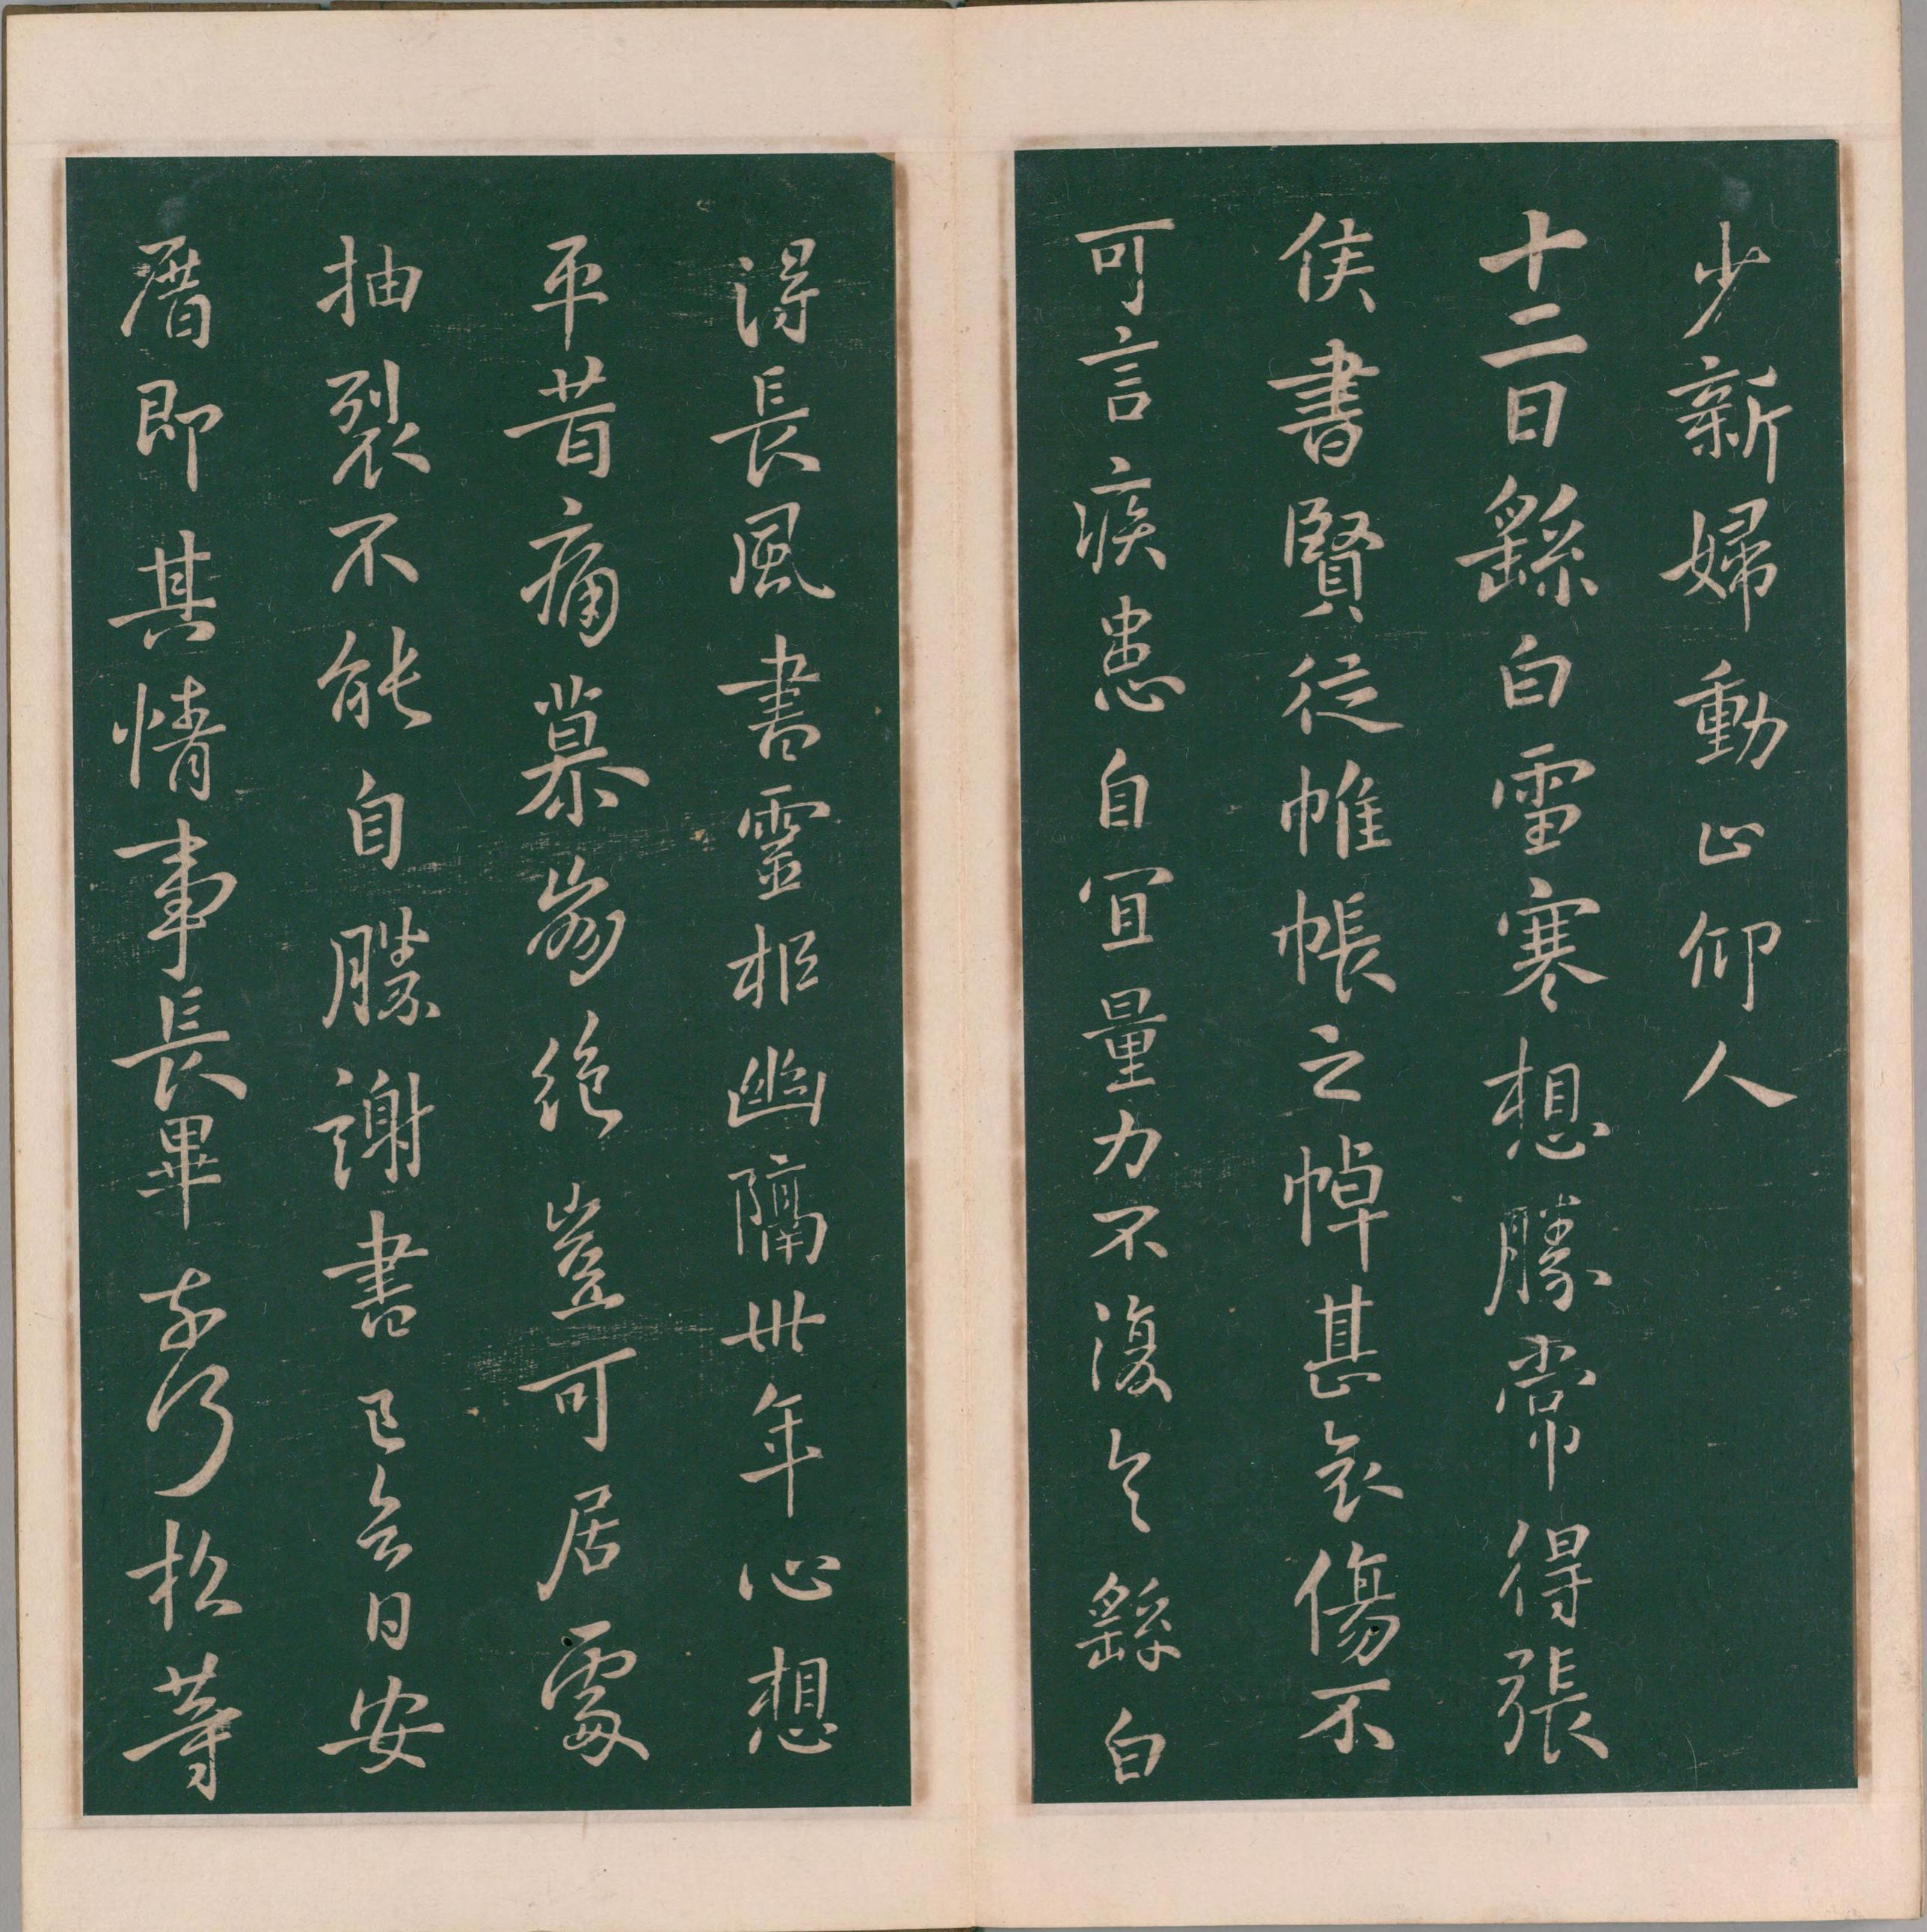 少新婦動止仰人
十二日繇白雪寒想勝常得張
侯書賢從帷帳之悼甚哀傷不
可言疾患自宜量力不復具繇白
得長風書靈柩幽隔卅年心想
平昔痛慕崩絕豈可居處
抽裂不能自勝謝書已令日安
厝即其情事長畢 松等